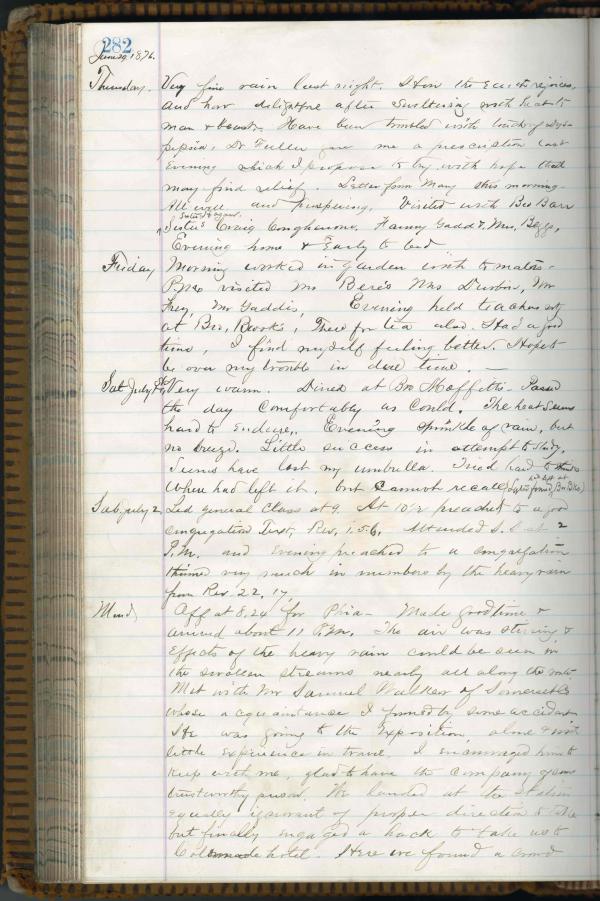 282
June 29, 1876.
Thursday. Very fine rain last night. How the Earth rejoices,
and how delightful after sweltering with heat to
man & beast. Have been troubled with touch of dys-
pepsia, Dr Fuller gave me a prescription last
evening which I propose to try with hope that
may find relief. Letter from Mary this morning.
All well and prospering. Visited with Bro Barr
Sister Craig Fanny Gadd & Mrs. Beggs,
Evening home & Early to bed
Friday Morning worked in garden with tomatoes.
P.M. visited Mrs Mrs Durbin, Mr
Frey, Mr Gaddis, Evening held teachers
at Bro, Brooks, There for tea also. Had a good
time, I find myself feeling better. Hope to
be over my trouble in due time. —
Sat July 1st Very warm. Dined at Bro Moffetts. Passed
the day comfortably as could. The heat seems
hard to endure. Evening sprinkle of rain, but
no breeze. Little success in attempt to study.
Seems have lost my umbrella. Tried hard to think
where had left it, but cannot recall
Sab. July 2 Led general class at 9. At 10½ preached to a good
congregation Text, Rev, 1. 5-6, Attended S. S. at 2
P.M. and evening preached to a congregation
thinned very much in numbers by the heavy rain
from Rev. 22, 17,
Mond, Off at 8.24 for Phia- Made good time &
arrived about 11 P.M. The air was stirring &
effects of the heavy rain could be seen in
the swollen streams nearly all along the route
Met with Mr Samuel Walker of
whose acquaintance I formed by some accident
He was going to the Exposition, alone & with
little experience in travel. I encouraged him to
keep with me, glad to have the company of some
trustworthy person. We landed at the Station
equally ignorant of proper direction to take
but finally engaged a hack to take us to
hotel. Here we found a crowd